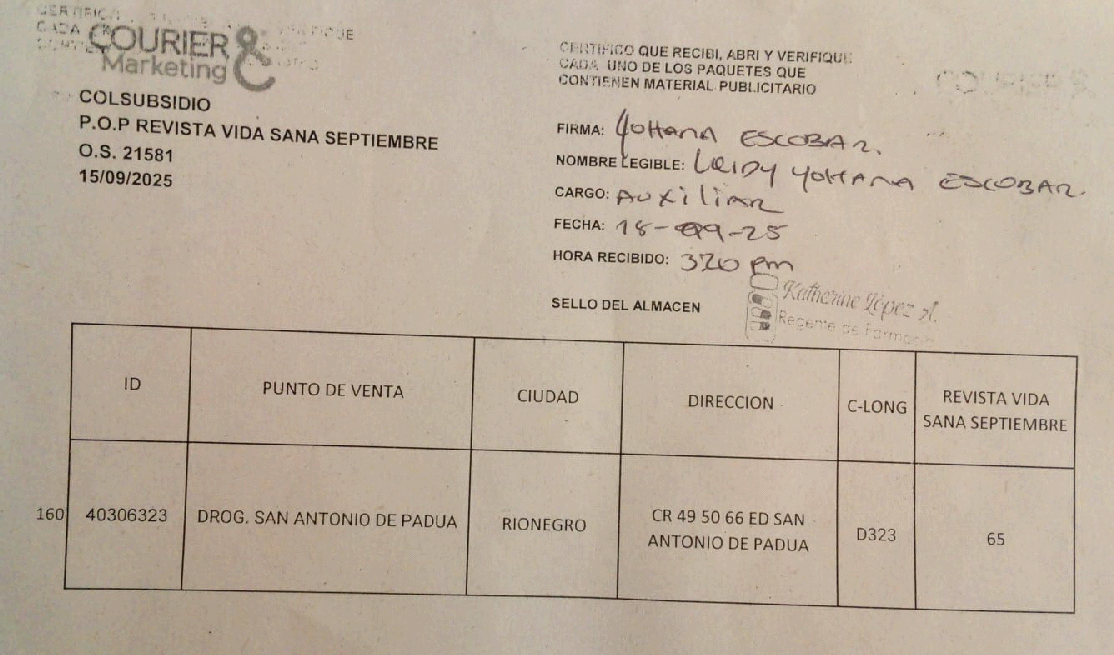 COURIER &
Marketing
COLSUBSIDIO
P.O.P REVISTA VIDA SANA SEPTIEMBRE
O.S. 21581
15/09/2025
CERTIFICO QUE RECIBI, ABRI Y VERIFIQUE
CADA UNO DE LOS PAQUETES QUE
CONTIENEN MATERIAL PUBLICITARIO
FIRMA: YoHana ESCOBAR.
NOMBRE LEGIBLE: LeIDy YoHana ESCOBAR.
CARGO: Auxiliar
FECHA: 18-09-25
HORA RECIBIDO: 320 pm
SELLO DEL ALMACEN
Katherine López A.
Regente de Farmacia
ID PUNTO DE VENTA CIUDAD DIRECCION C-LONG REVISTA VIDA SANA SEPTIEMBRE
160 40306323 DROG. SAN ANTONIO DE PADUA RIONEGRO CR 49 50 66 ED SAN ANTONIO DE PADUA D323 65